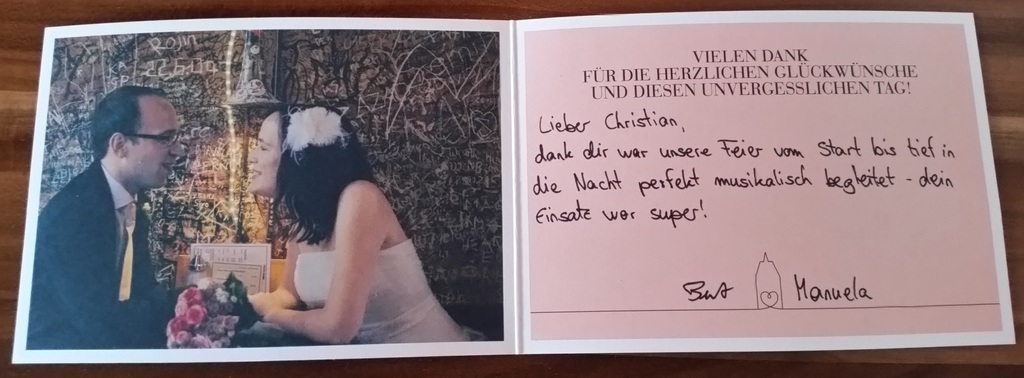 VIELEN DANK
FÜR DIE HERZLICHEN GLÜCKWÜNSCHE
UND DIESEN UNVERGESSLICHEN TAG!
Lieber Christian,
dank dir war unsere Feier vom Start bis tief in
die Nacht perfekt musikalisch begleitet - dein
Einsatz war super!
Manuela